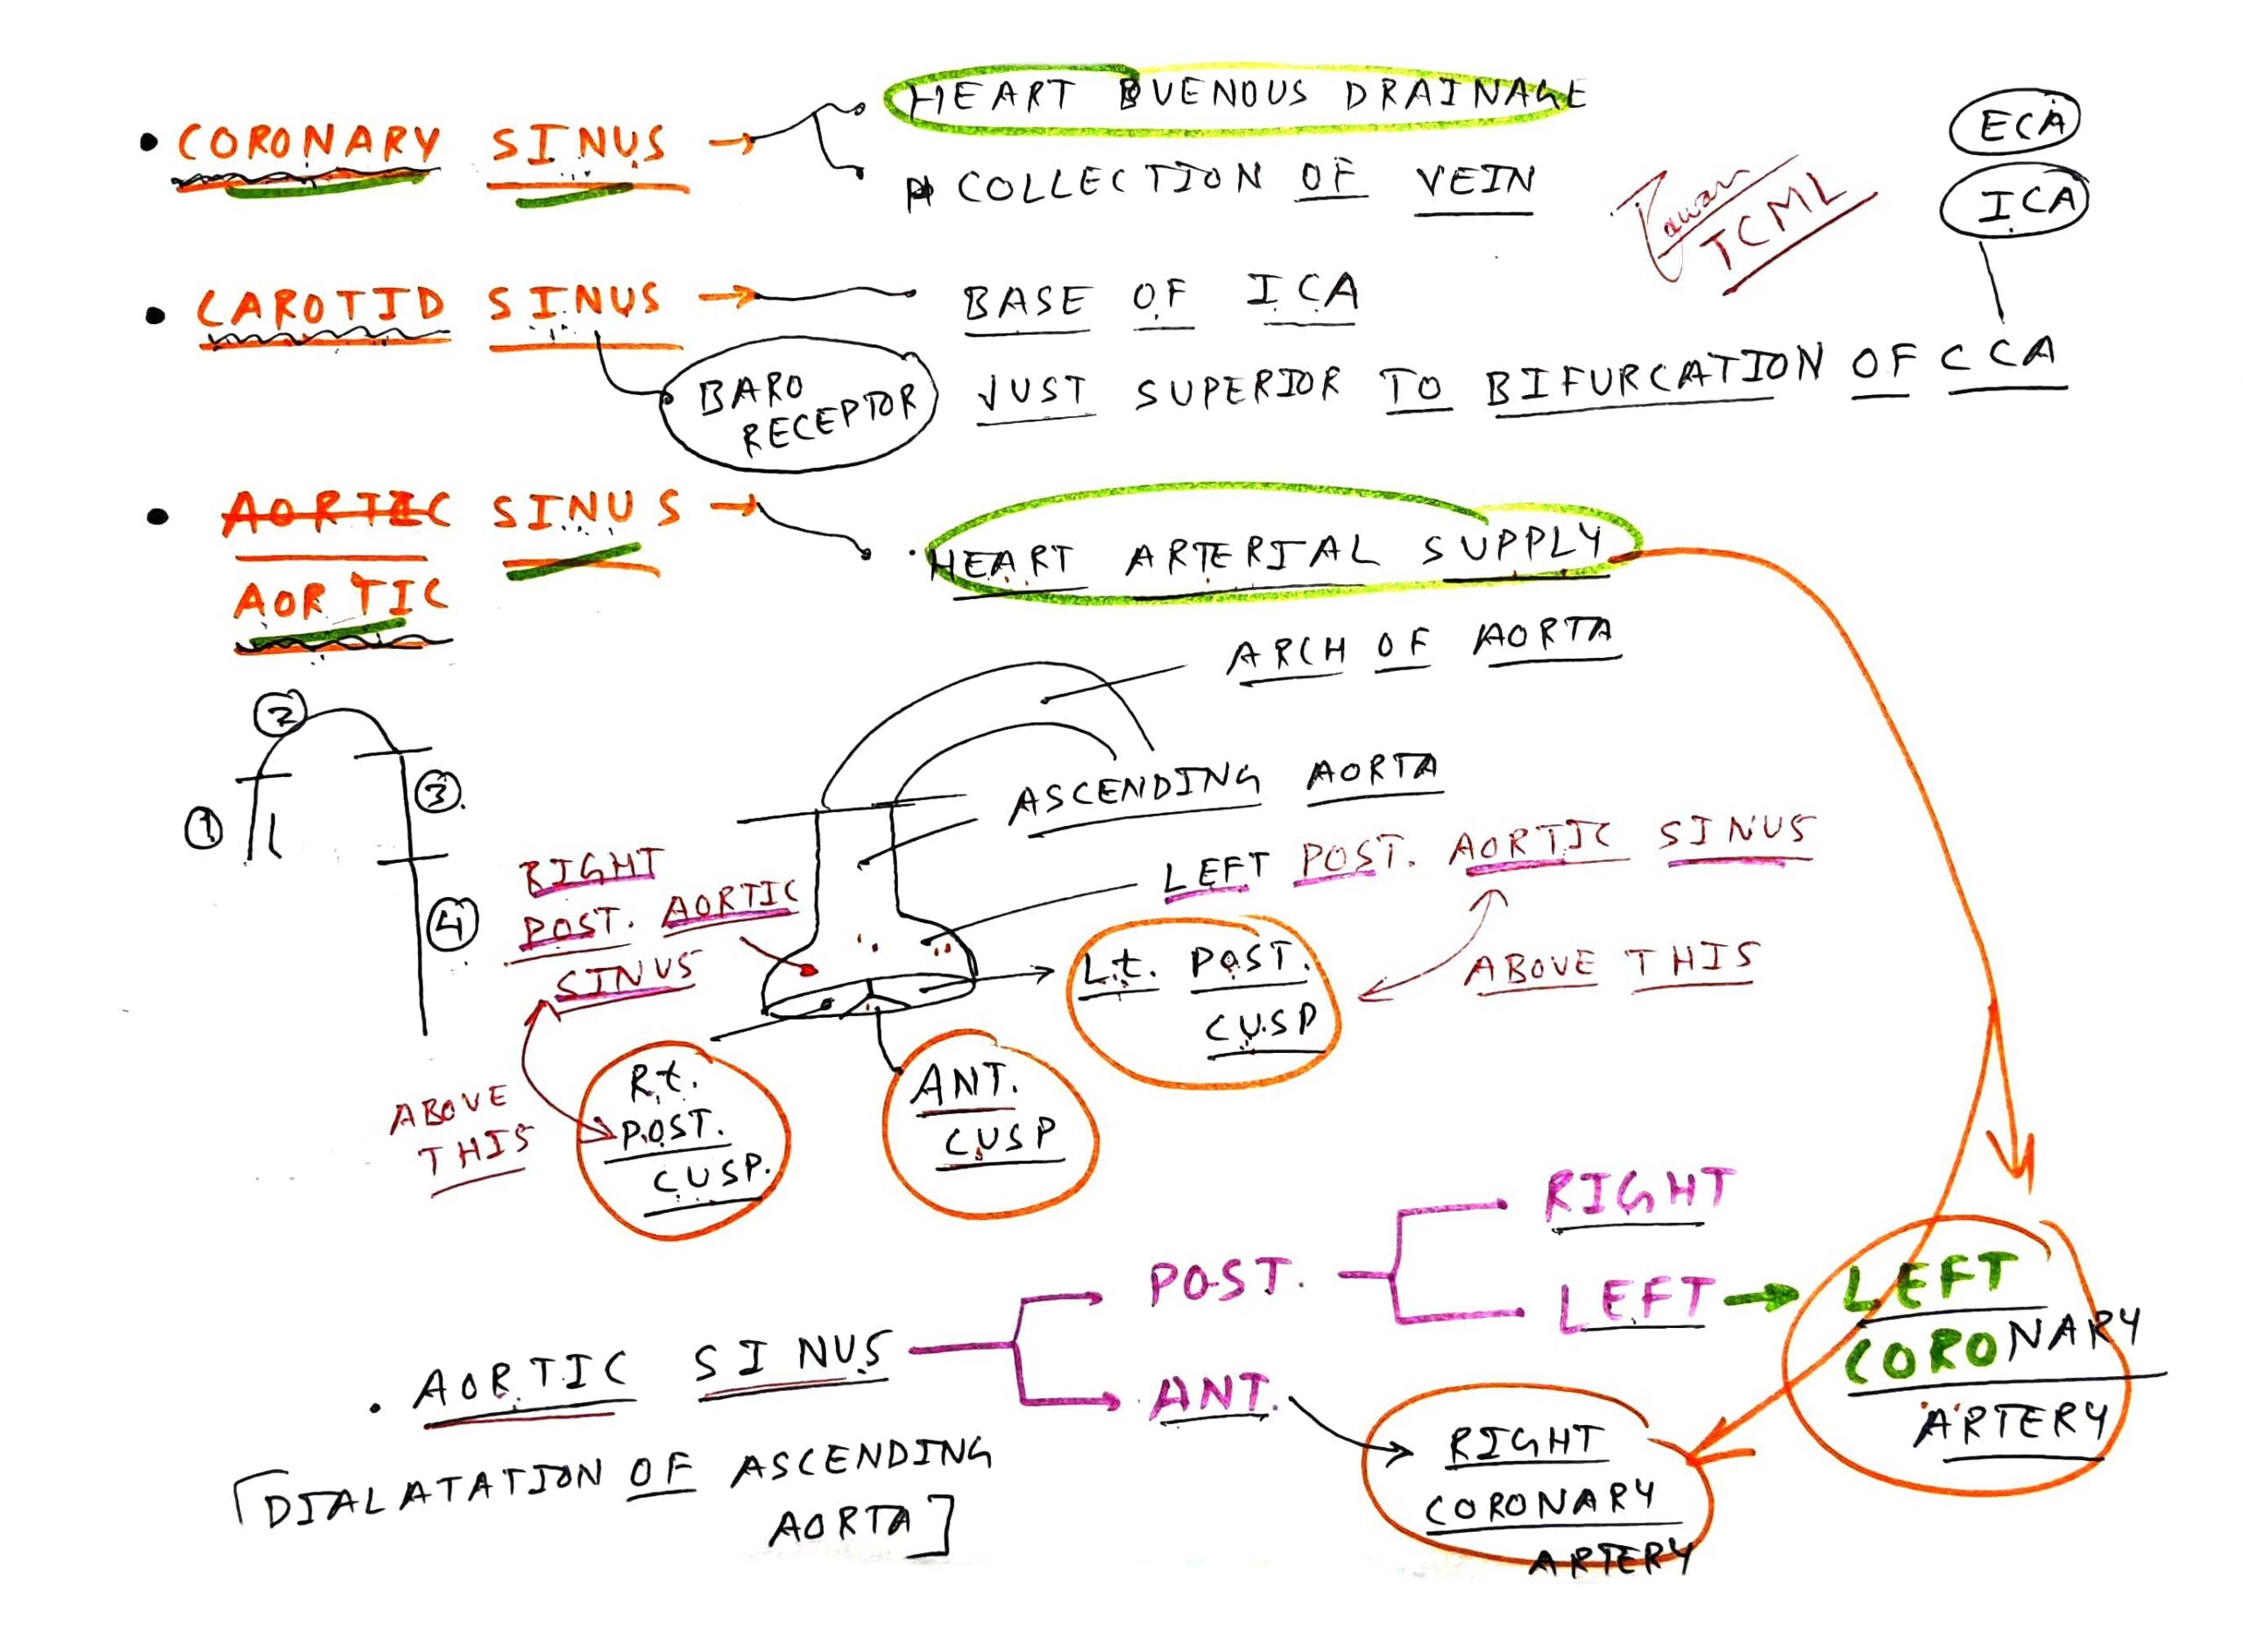 • CORONARY SINUS → HEART VENOUS DRAINAGE
COLLECTION OF VEIN
ECA
ICA
TCML
• CAROTID SINUS → BASE OF ICA
BARO
RECEPTOR
JUST SUPERIOR TO BIFURCATION OF CCA
• AORTIC SINUS → HEART ARTERIAL SUPPLY
AORTIC
ARCH OF AORTA
2
ASCENDING AORTA
3.
1
LEFT POST. AORTIC SINUS
RIGHT
POST. AORTIC
SINUS
4
Lt. POST.
CUSP
ABOVE THIS
Rt.
POST.
CUSP.
ANT.
CUSP
ABOVE
THIS
RIGHT
POST.
LEFT → LEFT
CORONARY
ARTERY
• AORTIC SINUS
ANT.
RIGHT
CORONARY
ARTERY
[DIALATATION OF ASCENDING
AORTA]